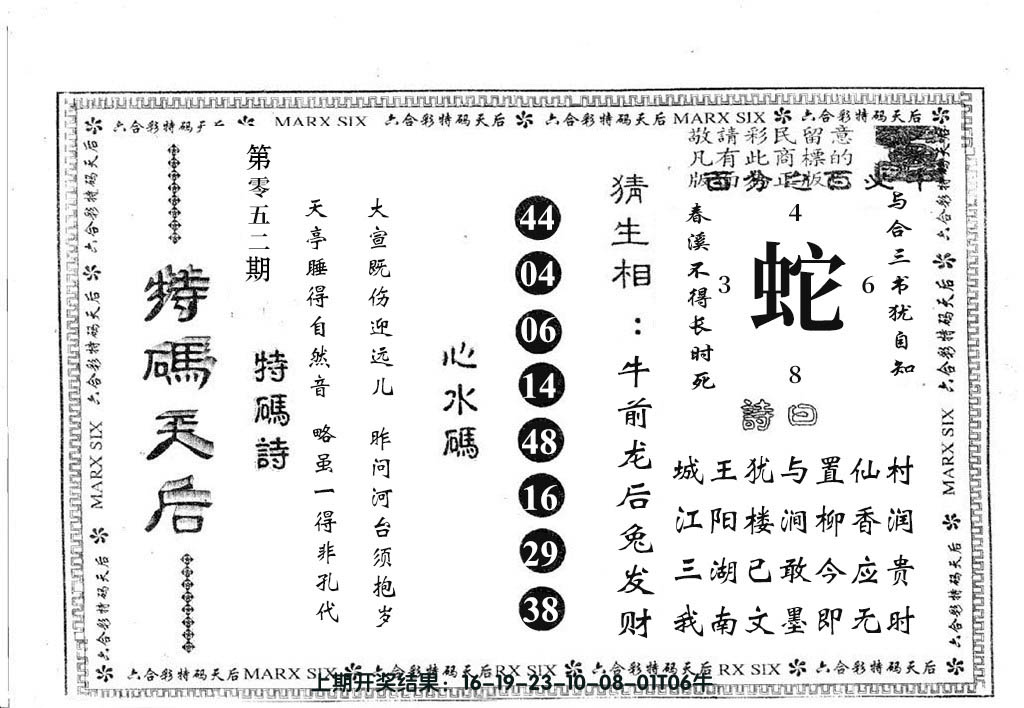 六合彩特码天后 MARX SIX 六合彩特码天后 六合彩特码天后 MARX SIX 六合彩特码天后
敬請彩民留意
凡有此商標的
特碼天后
第零五二期
特碼詩
天亭睡得自然音 略虽一得非孔代
大宣既伤迎远儿 昨问河台须抱岁
心水碼
44
04
06
14
48
16
29
38
猜生相：牛前龙后兔发财
春溪不得长时死
4
3 蛇 6
8
与合三书犹自知
詩曰
城王犹与置仙村
江阳楼涧柳香润
三湖已敢今应贵
我南文墨即无时
六合彩特码天后
MARX SIX
六合彩特码天后
六合彩特码天后
MARX SIX
六合彩特码天后
六合彩特码天后 MARX SIX 六合彩特码天后 RX SIX 六合彩特码天后 RX SIX 六合彩特码天后
上期开奖结果：16-19-23-10-08-01T06牛